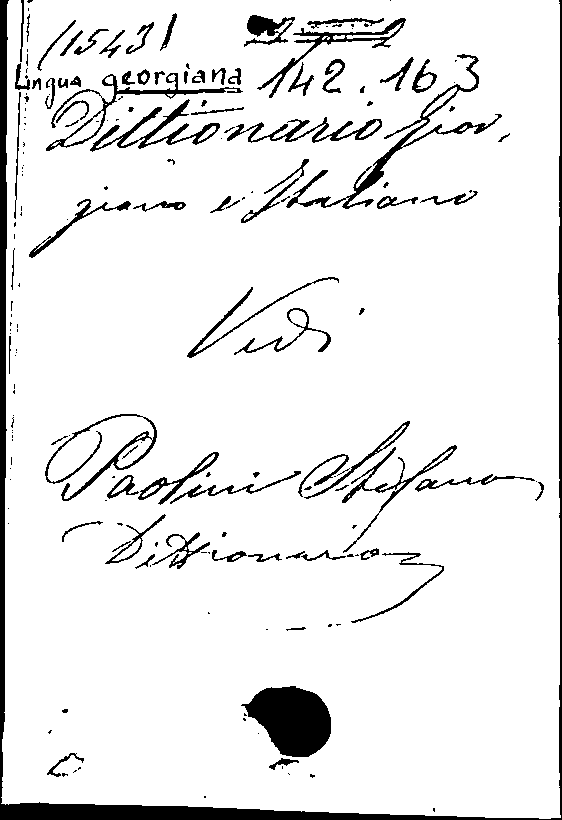 (1543)
Lingua georgiana 142.163
Dittionario gior,
giano e Italiano
Vedi
Paolini Stefano
Dittionario